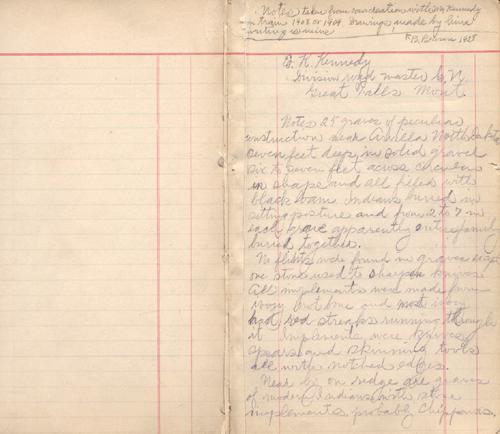 Notes taken from conversation with Mr Kennedy
on train 1908 or 1909. Drawings made by him
writing is mine
F.B. 1925
G. K. Kennedy
Division road master G. N.
Great Falls Mont
Notes 25 graves of peculiar
construction near Arvilla North Dakota
seven feet deep in solid gravel
six to seven feet across circular
in shape and all filled with
black loam. Indians buried in
sitting posture and from 2 to 7 in
each grave apparently entire family
buried together.
No flints were found in graves except
one stone used to sharpen knives
All implements were made from
ivory and bone and most ivory
had red streaks running through
it Implements were knives
spears and skinning tools
all with notched edges.
Near by on ridge are graves
of modern Indians with stone
implements probably Chippewas.